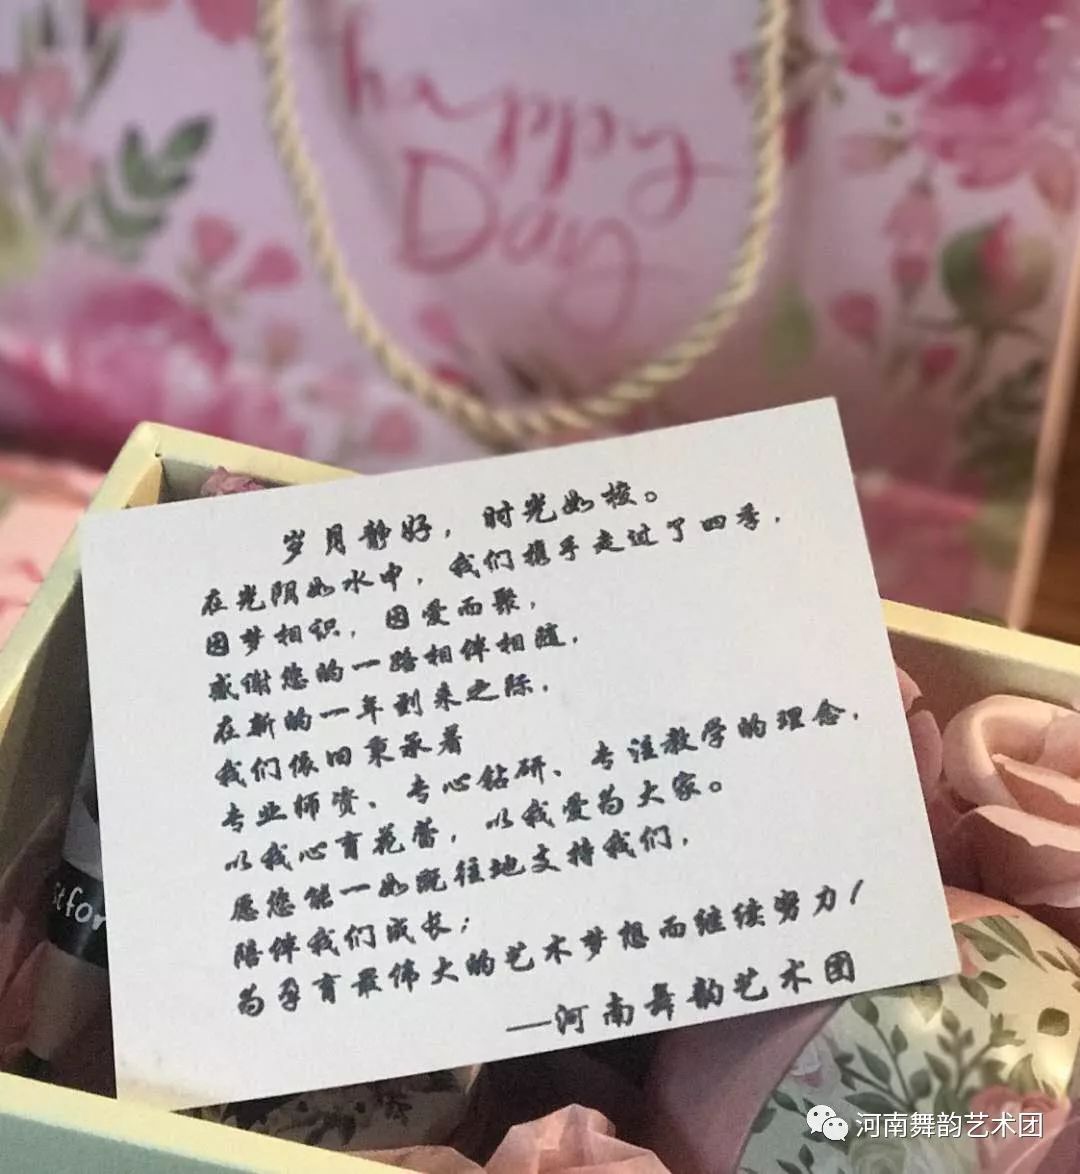 happy
Day
岁月静好，时光如梭。
在光阴如水中，我们携手走过了四季，
因梦相识，因爱而聚，
感谢您的一路相伴相随，
在新的一年到来之际，
我们依旧秉承着
专业师资、专心钻研、专注教学的理念，
以我心育花蕾，以我爱为大家。
愿您能一如既往地支持我们，
陪伴我们成长；
为孕育最伟大的艺术梦想而继续努力！
——河南舞韵艺术团
stfor
河南舞韵艺术团